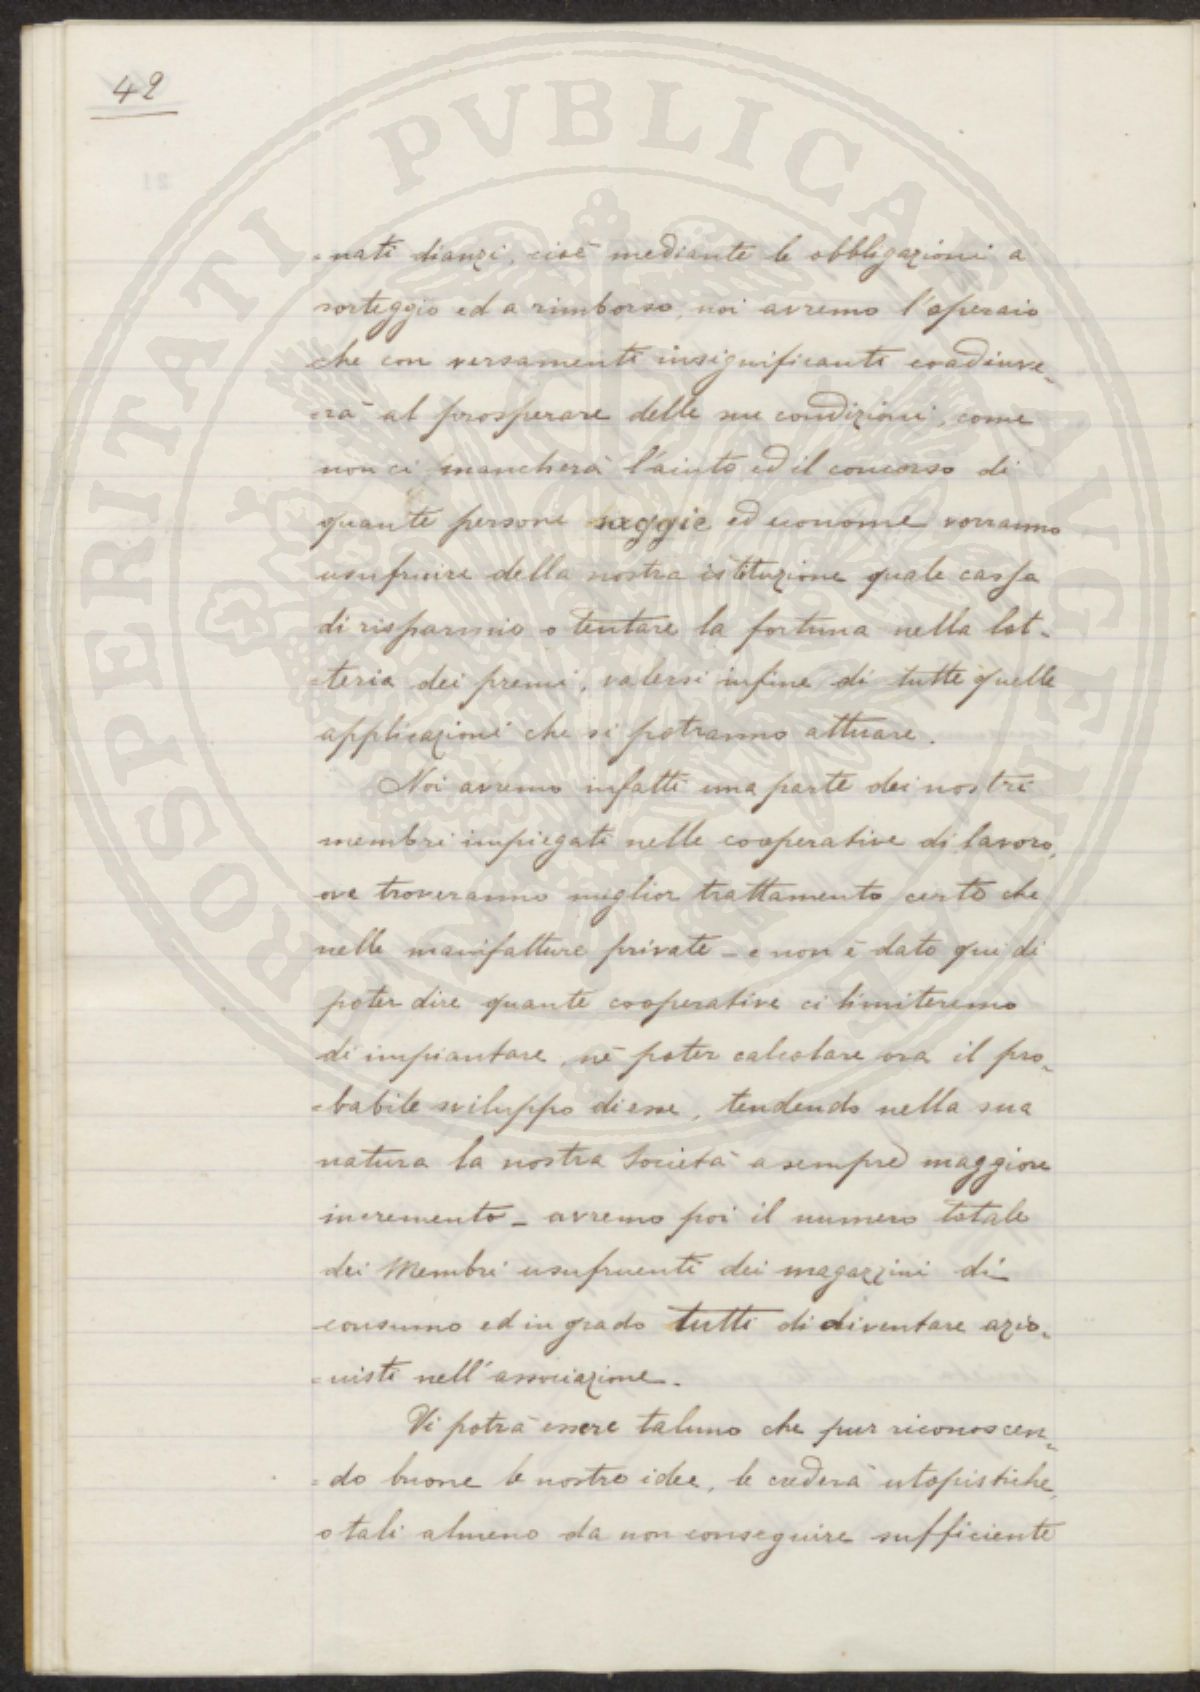 42
PROSPERITATI PVBLICAE AVGENDAE
-nati dianzi, cioè mediante le obbligazioni a
sorteggio ed a rimborso, noi avremo l'operaio
che con versamenti insignificanti coadiuve-
-rà al prosperare delle sue condizioni, come
non ci mancherà l'aiuto ed il concorso di
quante persone saggie ed econome vorranno
usufruire della nostra istituzione quale cassa
di risparmio o tentare la fortuna nella lot-
-teria dei premi, valersi infine di tutte quelle
applicazioni che si potranno attuare.
Noi avremo infatti una parte dei nostri
membri impiegati nelle cooperative di lavoro,
ove troveranno miglior trattamento certo che
nelle manifatture private - e non è dato qui di
poter dire quante cooperative ci limiteremo
di impiantare, nè poter calcolare ora il pro-
-babile sviluppo di esse, tendendo nella sua
natura la nostra Società a sempre maggiore
incremento - avremo poi il numero totale
dei Membri usufruenti dei magazzini di
consumo ed in grado tutti di diventare azio-
-nisti nell'associazione.
Vi potrà essere taluno che pur riconoscen-
-do buone le nostre idee, le crederà utopistiche,
o tali almeno da non conseguire sufficiente